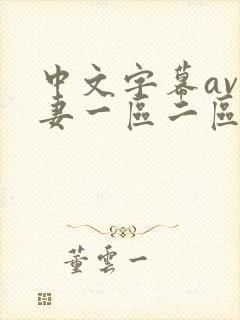 中文字幕av
妻一區二區
董雲一